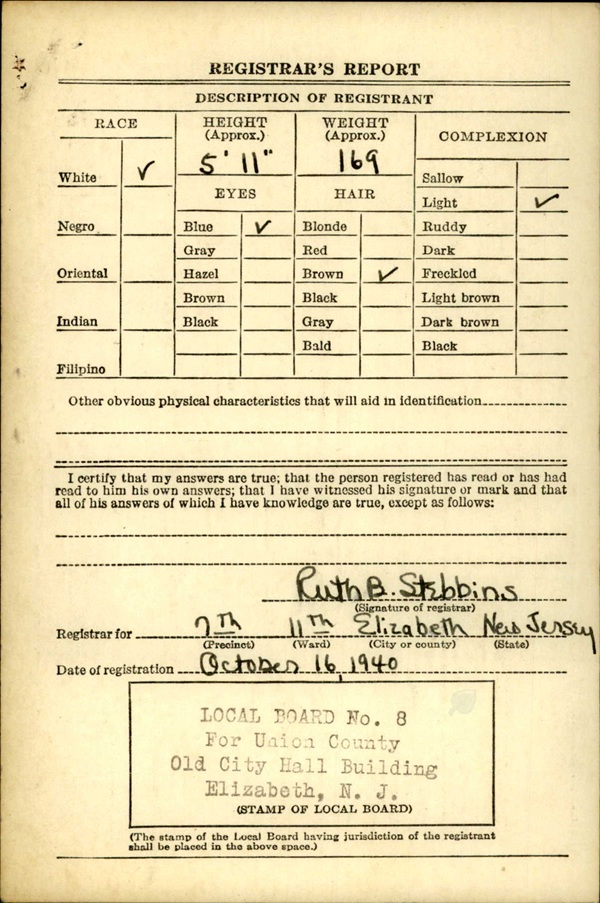 REGISTRAR'S REPORT
DESCRIPTION OF REGISTRANT
RACE
HEIGHT
(Approx.)
WEIGHT
(Approx.)
COMPLEXION
5' 11"
169
White ✓
Sallow
EYES
HAIR
Light ✓
Negro
Blue ✓
Blonde
Ruddy
Gray
Red
Dark
Oriental
Hazel
Brown ✓
Freckled
Brown
Black
Light brown
Indian
Black
Gray
Dark brown
Bald
Black
Filipino
Other obvious physical characteristics that will aid in identification
I certify that my answers are true; that the person registered has read or has had
read to him his own answers; that I have witnessed his signature or mark and that
all of his answers of which I have knowledge are true, except as follows:
Ruth B. Stebbins
(Signature of registrar)
Registrar for 7th 11th Elizabeth New Jersey
(Precinct) (Ward) (City or county) (State)
Date of registration October 16, 1940
LOCAL BOARD No. 8
For Union County
Old City Hall Building
Elizabeth, N. J.
(STAMP OF LOCAL BOARD)
(The stamp of the Local Board having jurisdiction of the registrant
shall be placed in the above space.)